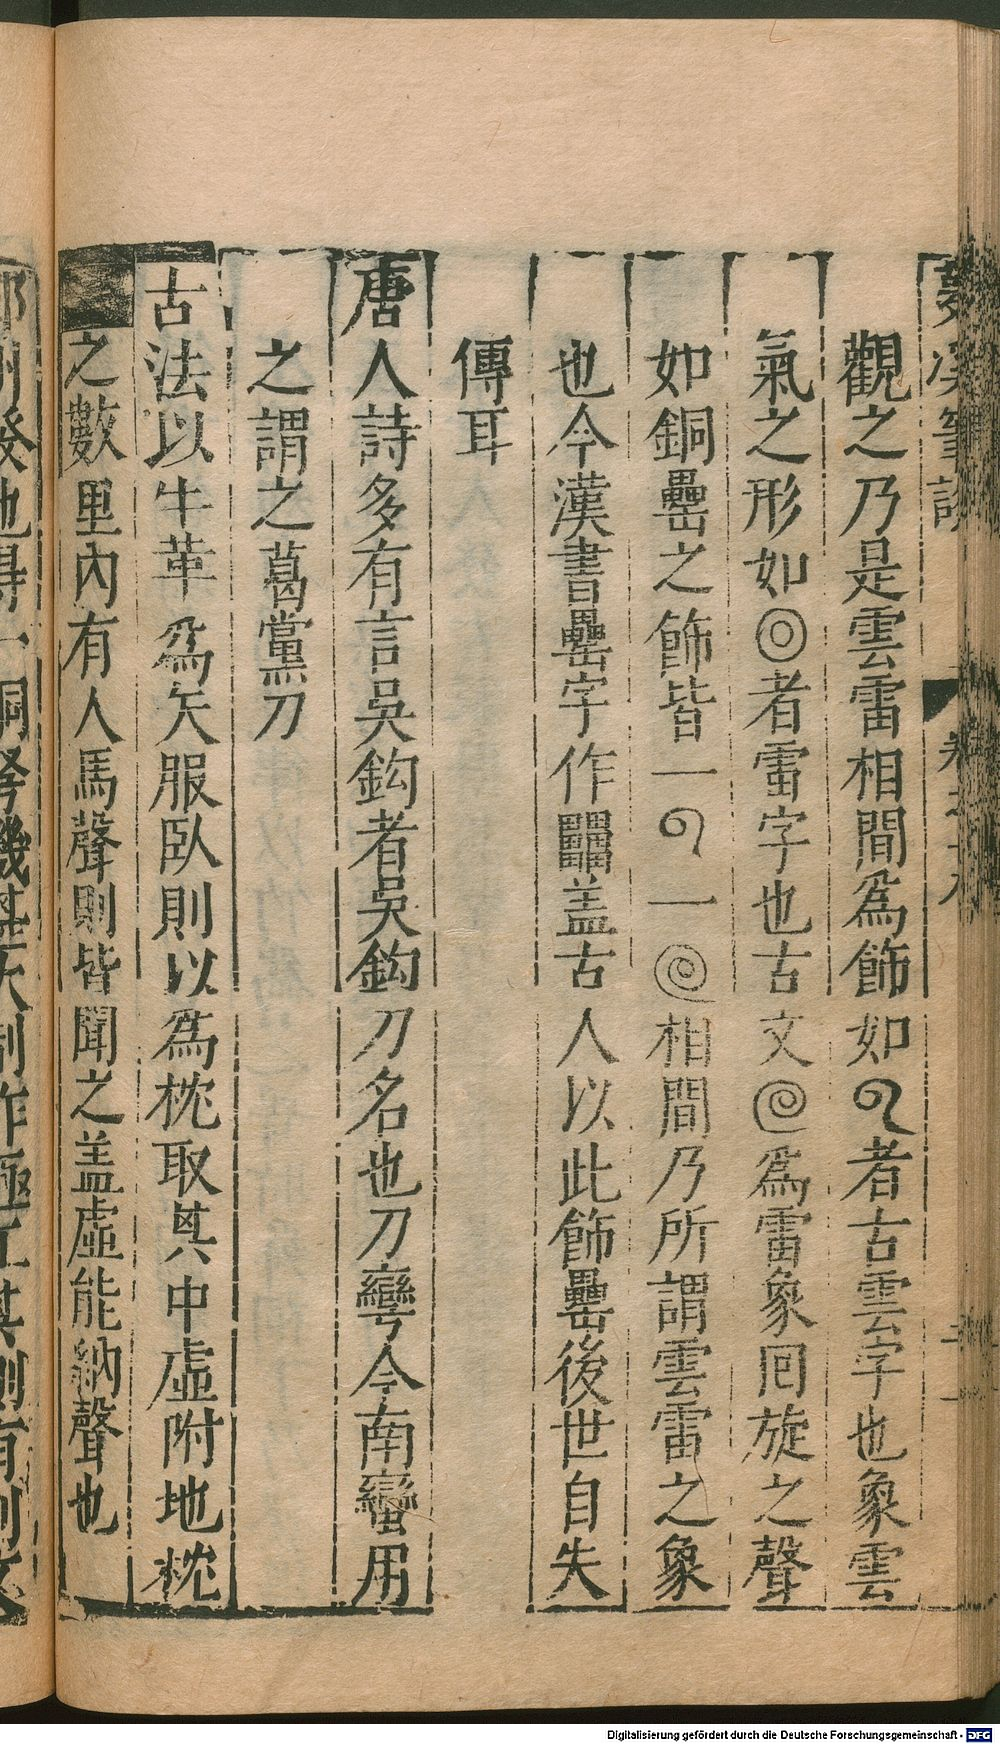 觀之乃是雲雷相間爲飾如者古雲字也象雲
氣之形如◎者雷字也古文爲雷象回旋之聲
如銅罍之飾皆一一相間乃所謂雲雷之象
也今漢書罍字作蓋古人以此飾罍後世自失
傳耳
唐人詩多有言吳鈎者吳鈎刀名也刀彎今南蠻用
之謂之葛黨刀
古法以牛革爲矢服臥則以爲枕取其中虛附地枕
之數里內有人馬聲則皆聞之盖虛能納聲也
Digitalisierung gefördert durch die Deutsche Forschungsgemeinschaft - DFG